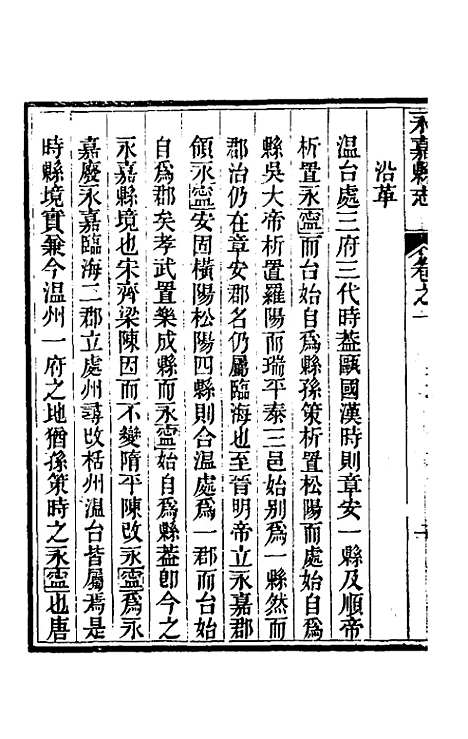 永嘉縣志 卷之一
沿革
温台處三府三代時蓋甌國漢時則章安一縣及順帝
析置永寍而台始自爲縣孫策析置松陽而處始自爲
縣吳大帝析置羅陽而瑞平泰三邑始别爲一縣然而
郡治仍在章安郡名仍屬臨海也至晉明帝立永嘉郡
領永寍安固橫陽松陽四縣則合温處爲一郡而台始
自爲郡矣孝武置樂成縣而永寍始自爲縣蓋卽今之
永嘉縣境也宋齊梁陳因而不變隋平陳改永寍爲永
嘉廢永嘉臨海二郡立處州尋改栝州温台皆屬焉是
時縣境實兼今温州一府之地猶孫策時之永寍也唐